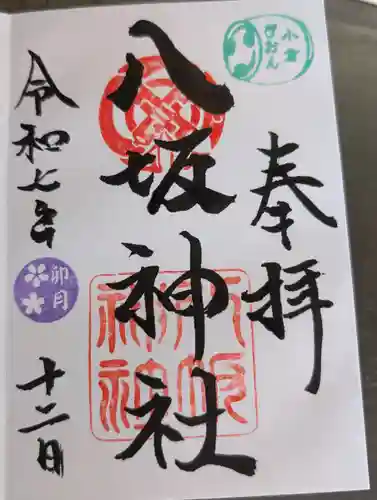 小倉
ぎおん
奉拝
八坂神社
八坂
神社
令和七年
卯月
十二日